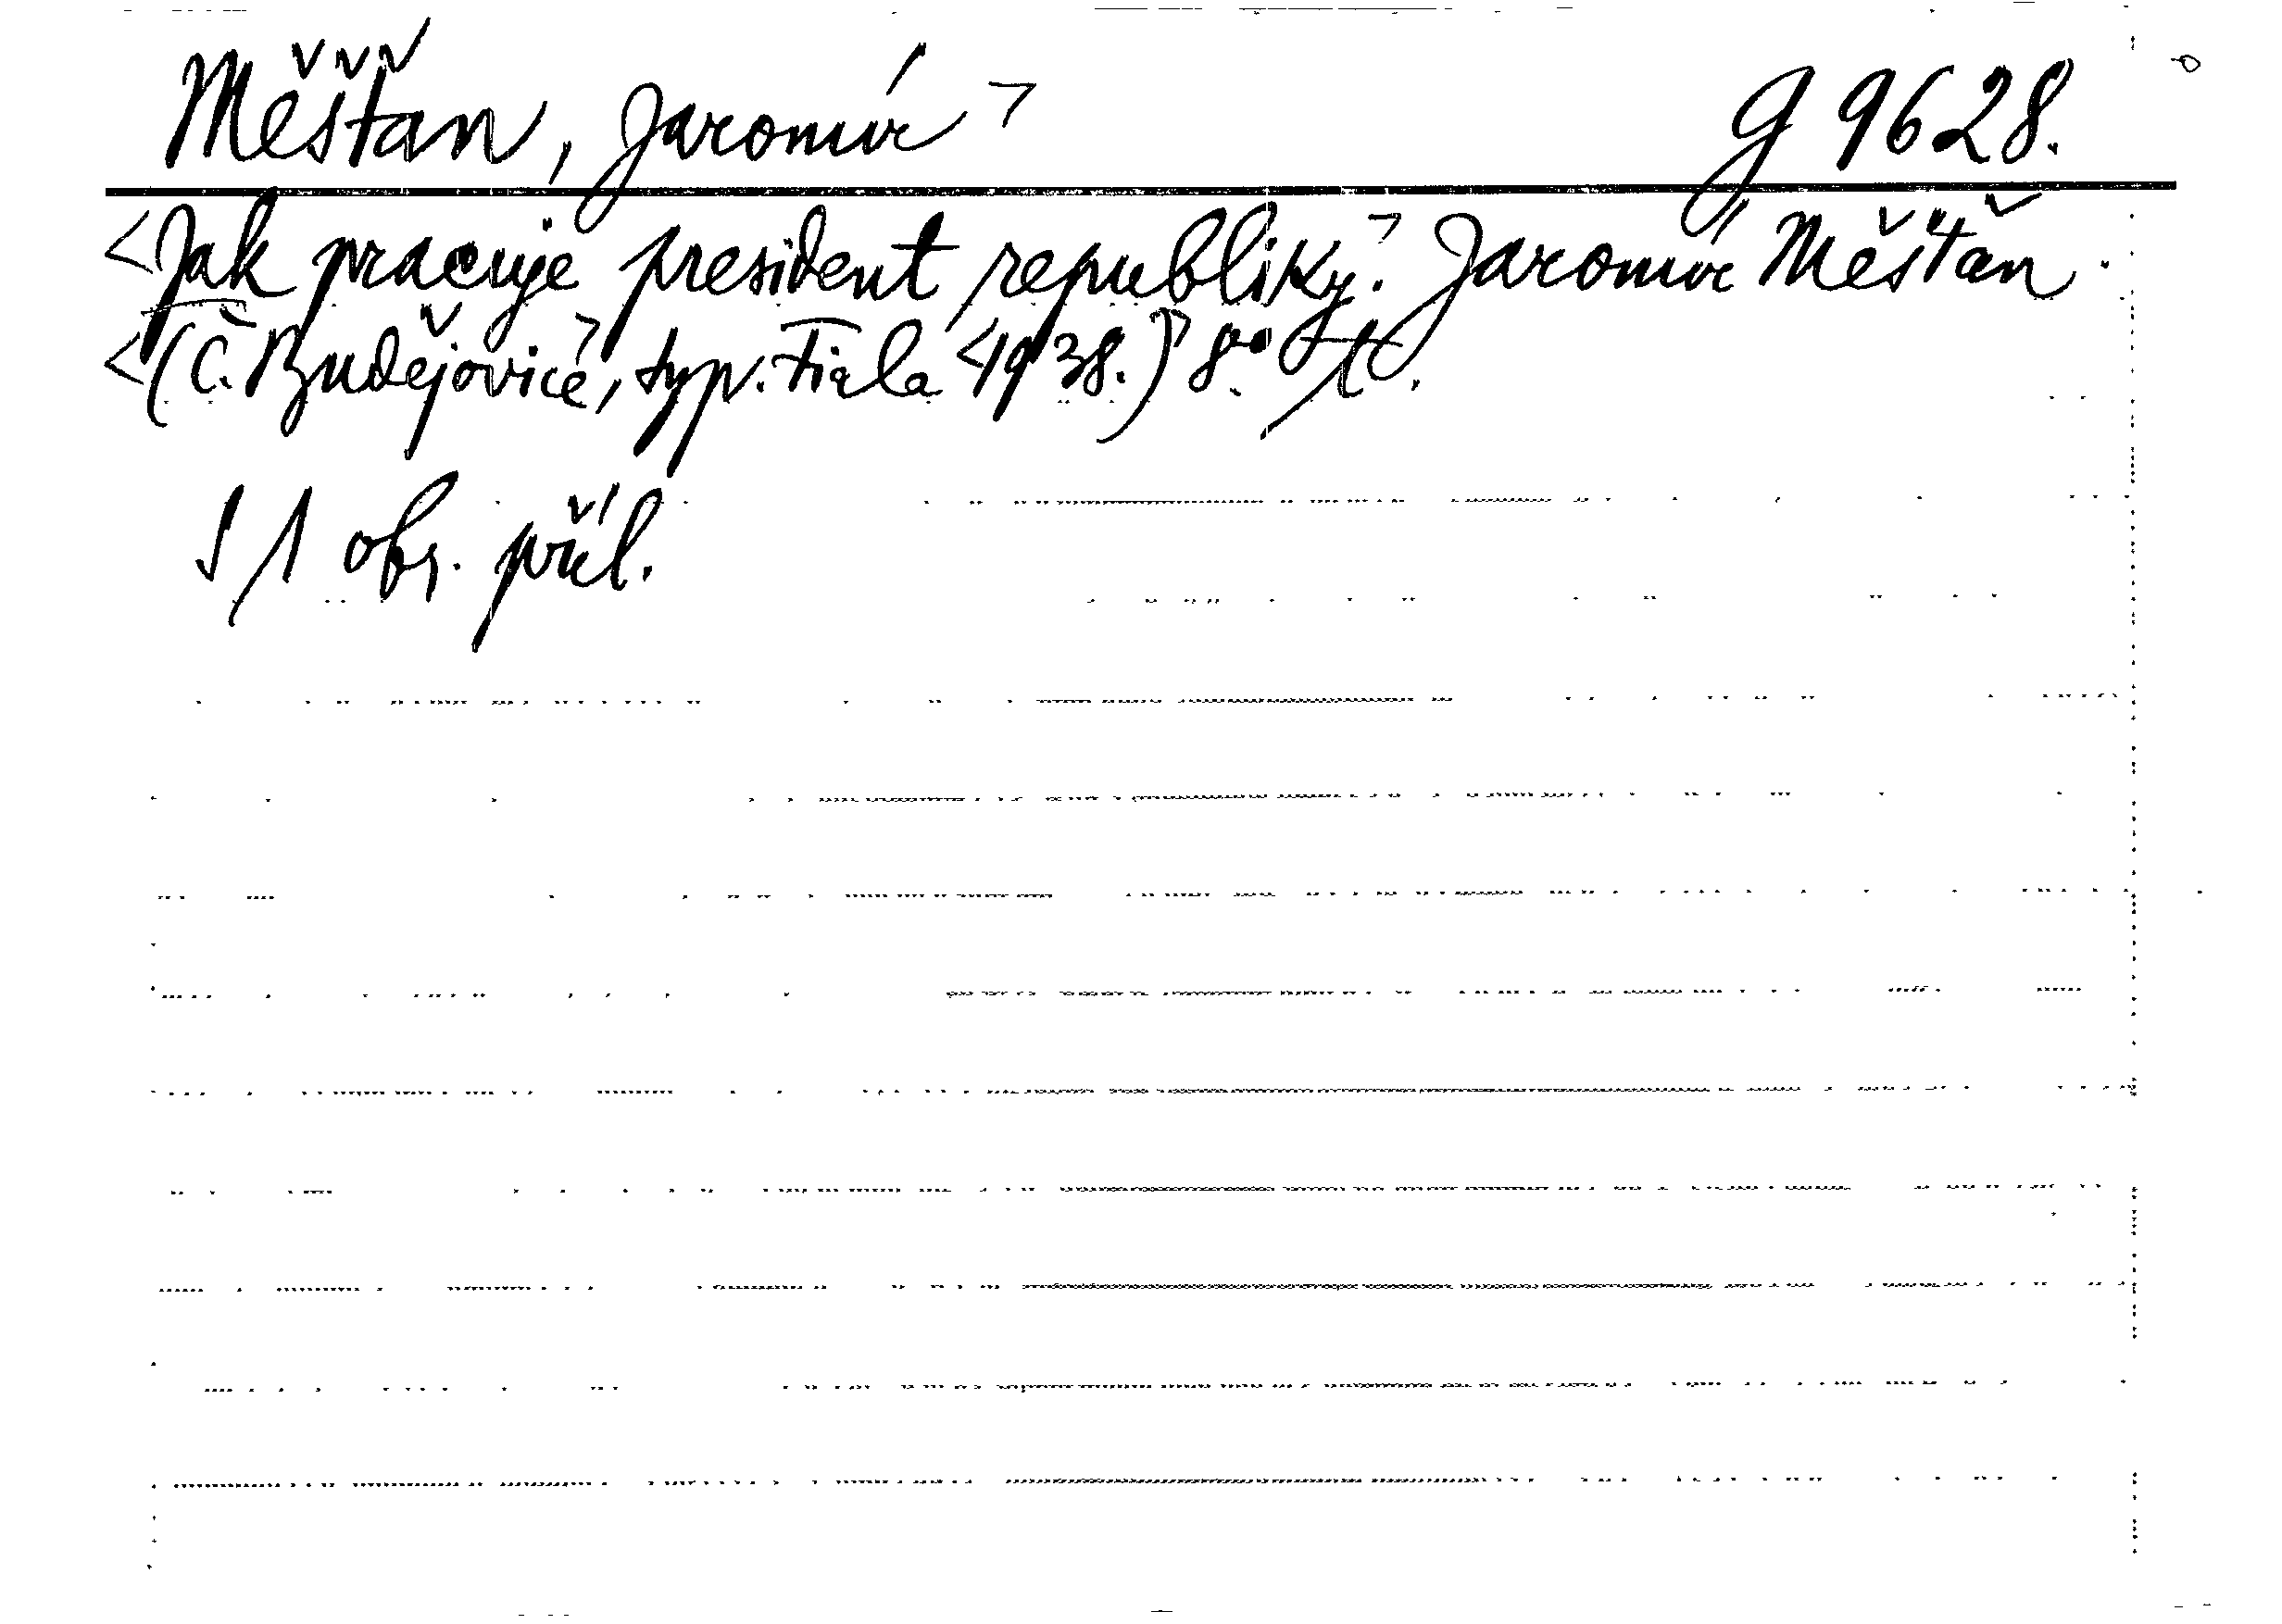 Měšťan, Jaromír ¬ g 9628.
<Jak pracuje president republiky.¬ Jaromír Měšťan.
<(Č. Budějovice¬, typ. Fiala <1938.)¬ 8°.
S 1 obr. příl.